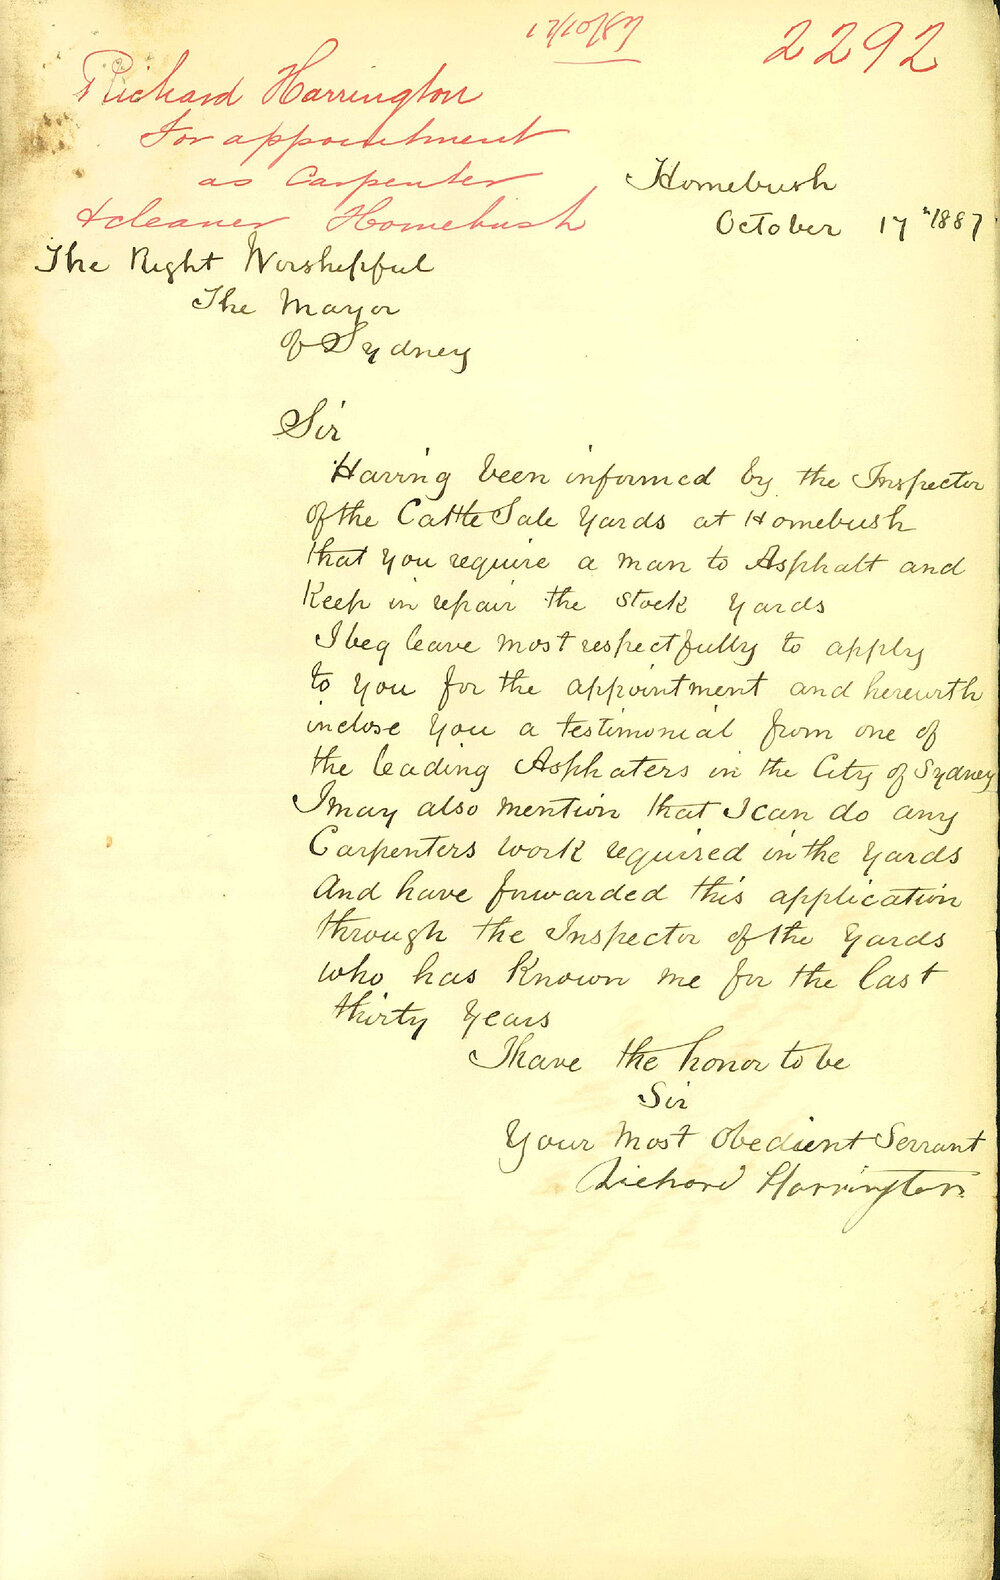 17/10/87
2292
Richard Harrington
For appointment
as Carpenter
& cleaner Homebush
Homebush
October 17th 1887
The Right Worshepful
The Mayor
of Sydney
Sir
Having been informed by the Inspector
of the Cattle Sale Yards at Homebush
that you require a man to Asphalt and
Keep in repair the Stock Yards
I beg leave most respectfully to apply
to you for the appointment and herewith
inclose you a testimonial from one of
the leading Asphaters in the City of Sydney
I may also mention that I can do any
Carpenters work required in the Yards
And have forwarded this application
through the Inspector of the Yards
who has Known me for the last
thirty Years
I have the honor to be
Sir
Your Most Obedient Servant
Richard Harrington